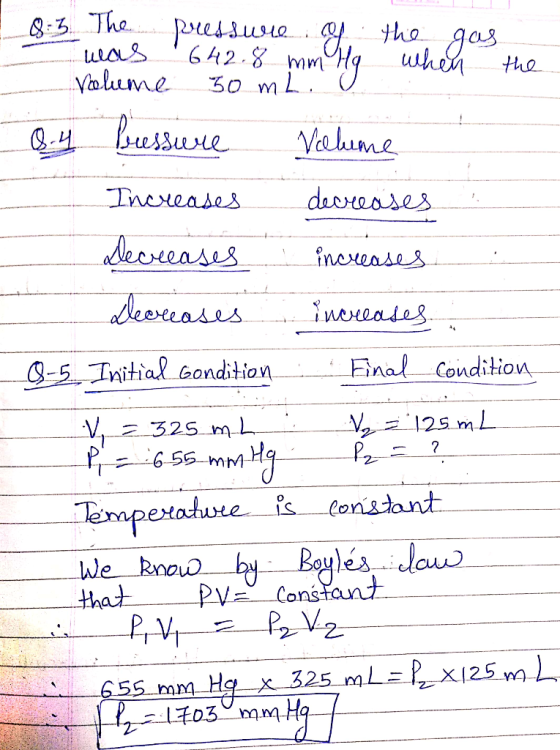 Q-3 The pressure of the gas
was 642.8 mm Hg when the
volume 30 mL.
Q-4 Pressure Volume
Increases decreases
Decreases increases
Decreases increases
Q-5 Initial Condition Final Condition
V₁ = 325 mL V₂ = 125 mL
P₁ = 655 mm Hg P₂ = ?
Temperature is constant
We know by Boyle's law
that PV = Constant
∴ P₁V₁ = P₂V₂
∴ 655 mm Hg × 325 mL = P₂ × 125 mL
∴ P₂ = 1703 mm Hg